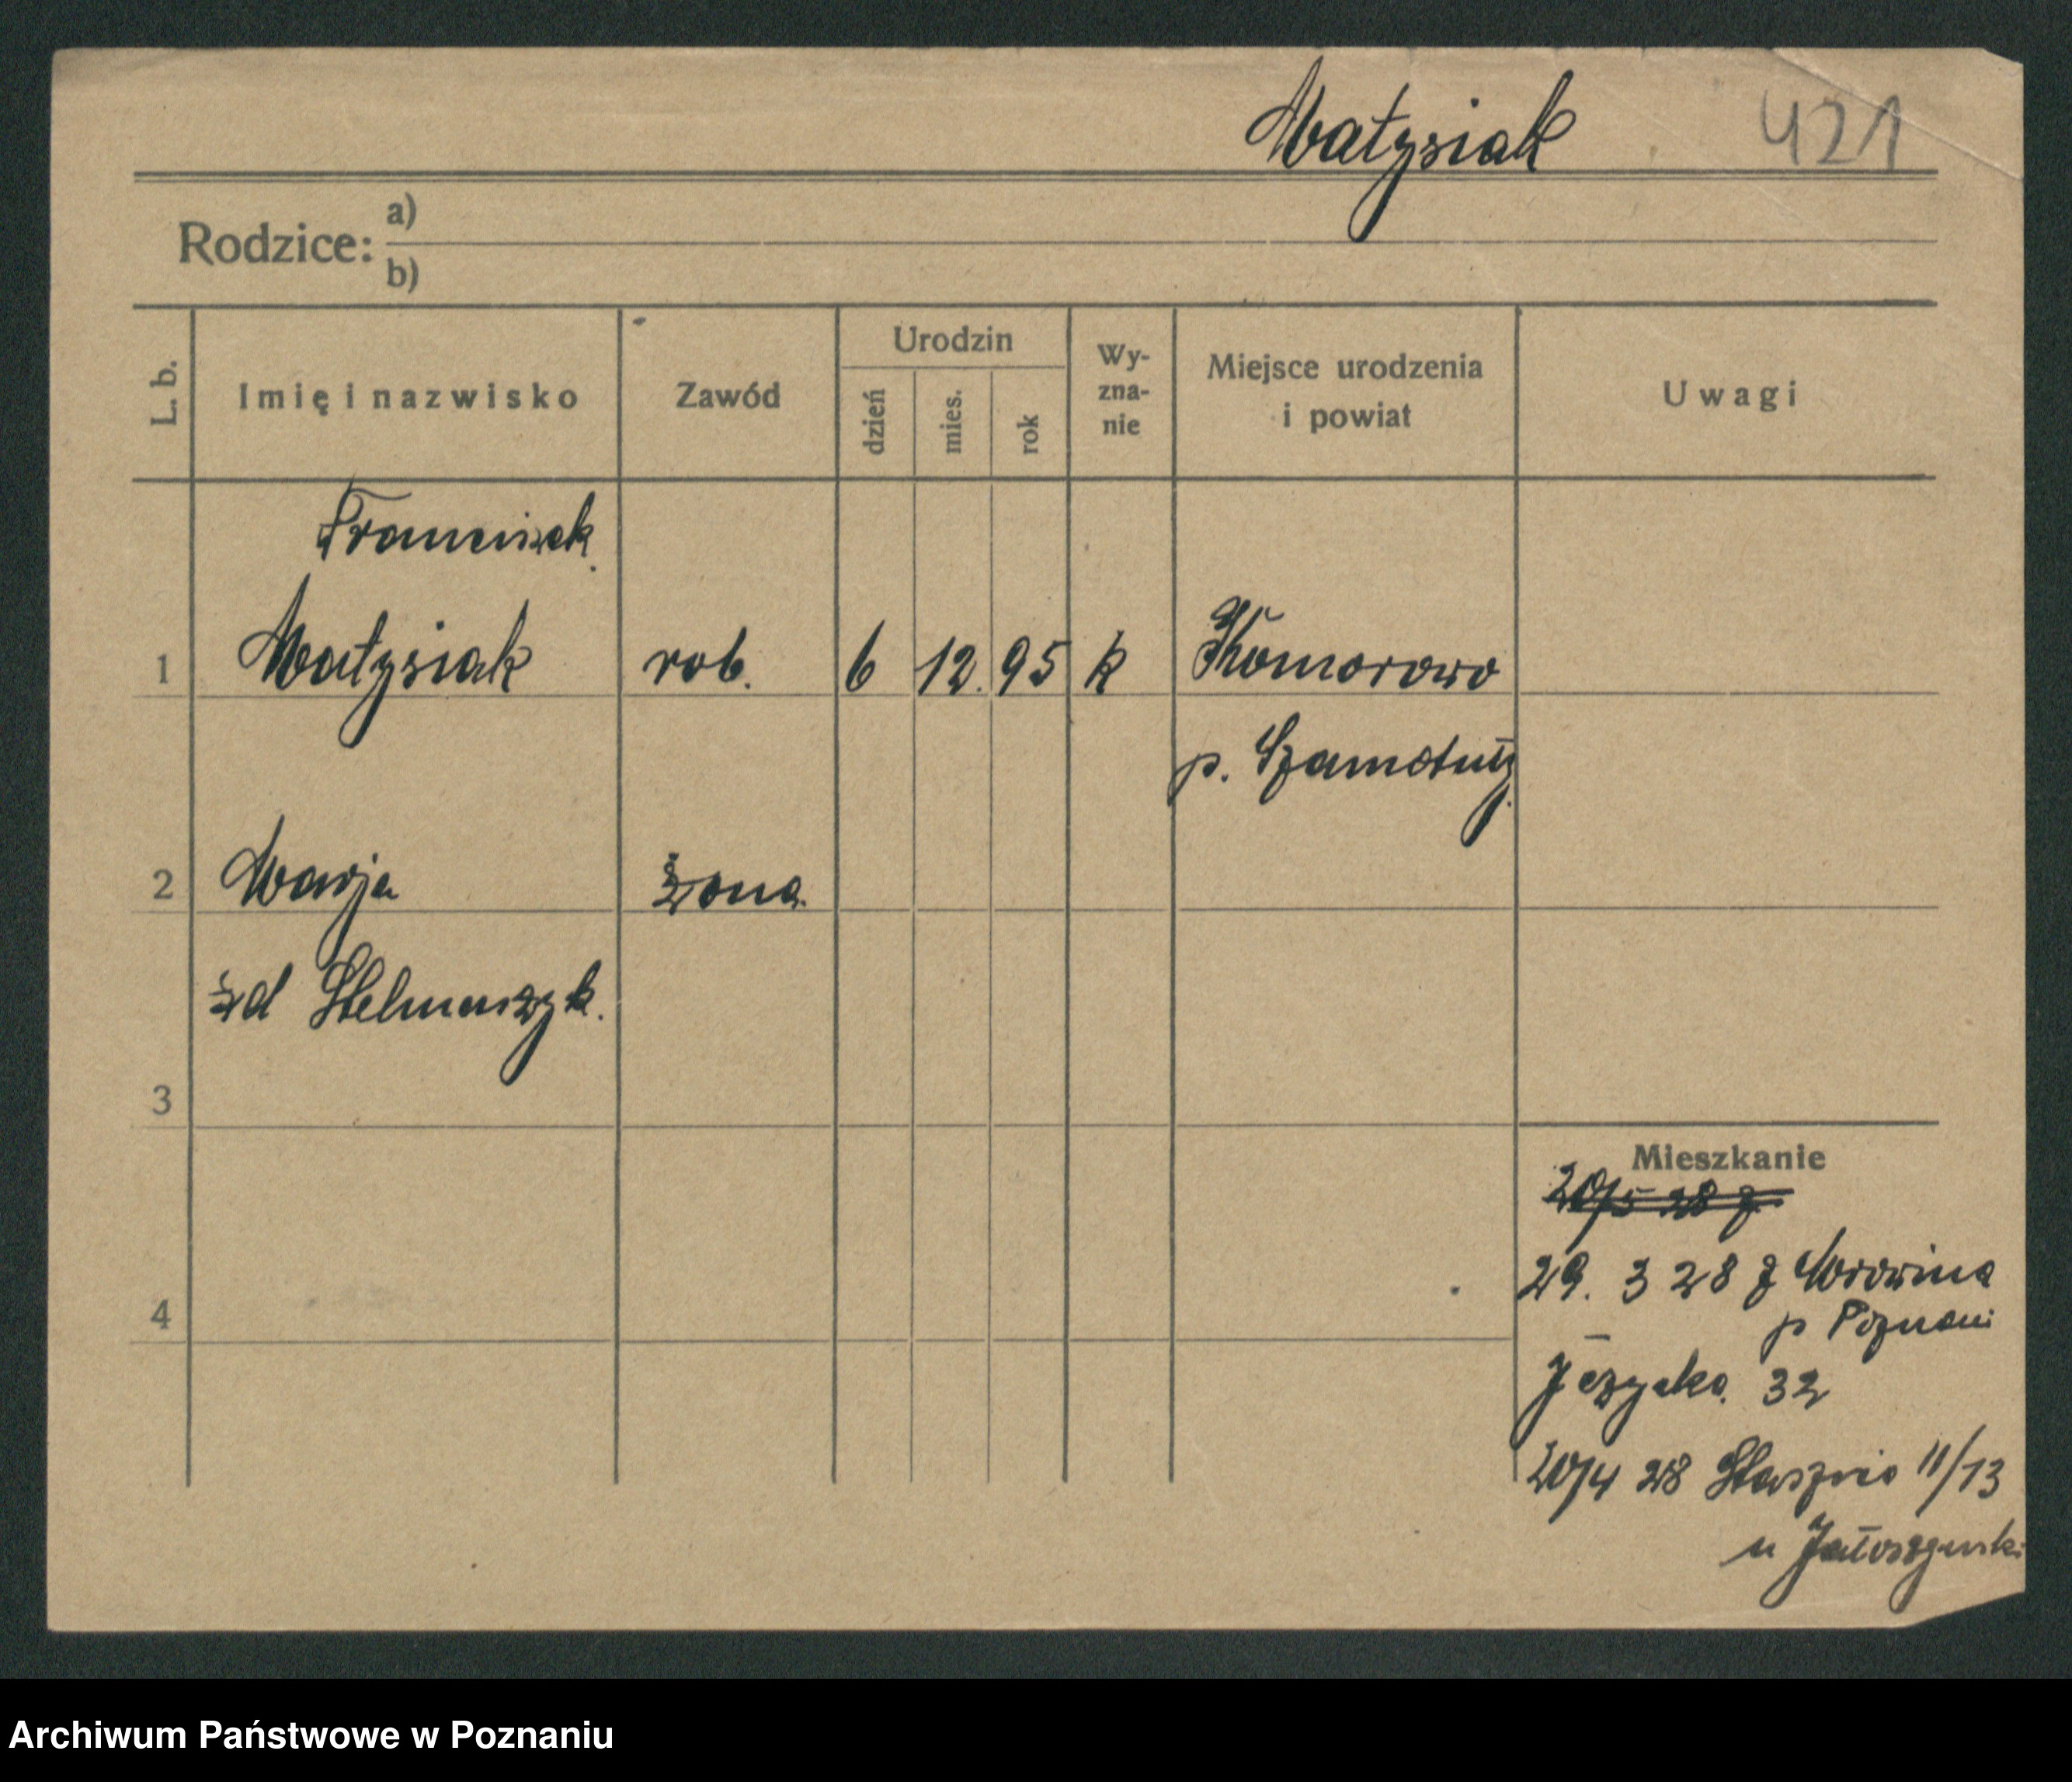 Matysiak 421
Rodzice: a)
b)
L. b. Imię i nazwisko Zawód Urodzin dzień mies. rok Wy-zna-nie Miejsce urodzenia i powiat Uwagi
Franciszek
1 Matysiak rob. 6 12. 95 k Komorowo
p. Szamotuły
2 Marja żona
zd Stelmaszyk.
3
Mieszkanie
20/5 28 z
29. 3 28 z Mrowina
p Poznań
4
Jeżycka 32
20/4 28 Staszica 11/13
u Jałoszyński
Archiwum Państwowe w Poznaniu